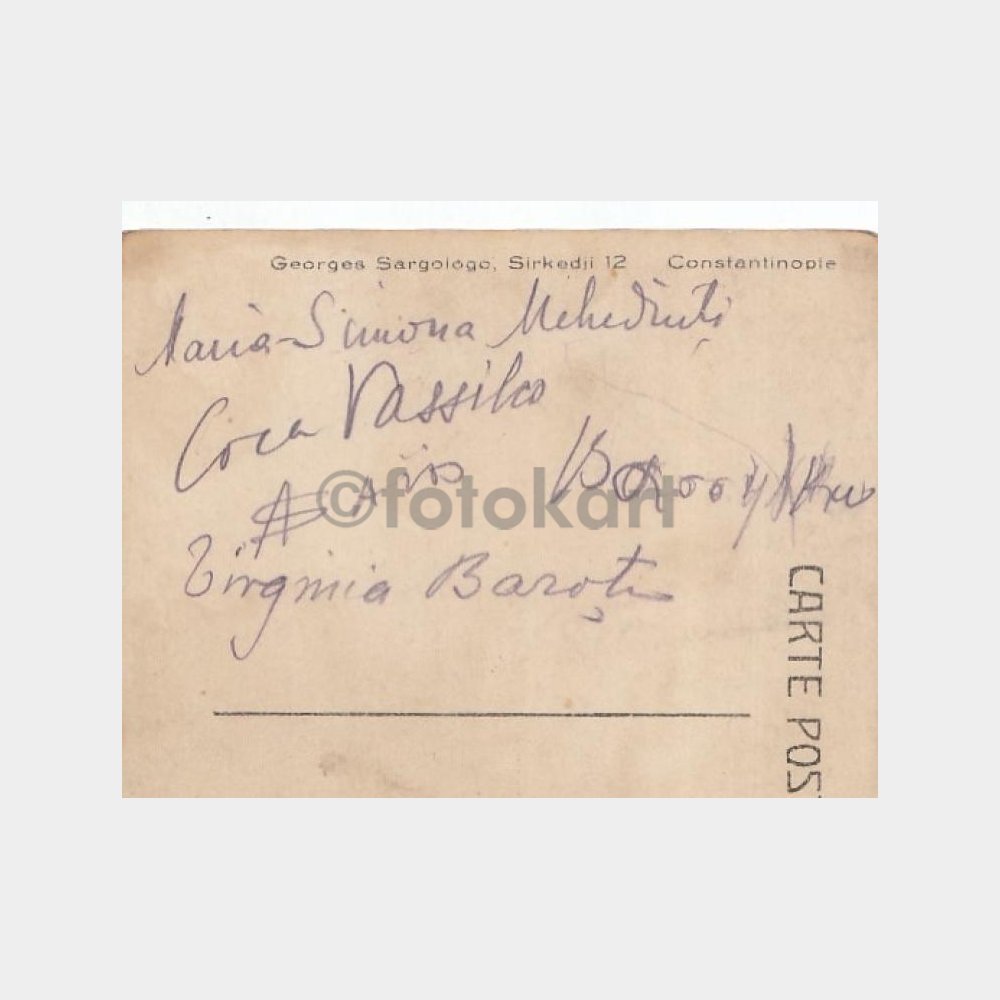 Georges Sargologo, Sirkedji 12 Constantinople
Maria-Simona Mehedinți
Coca Vassilko
Virginia Baroți
©fotokart
CARTE POST